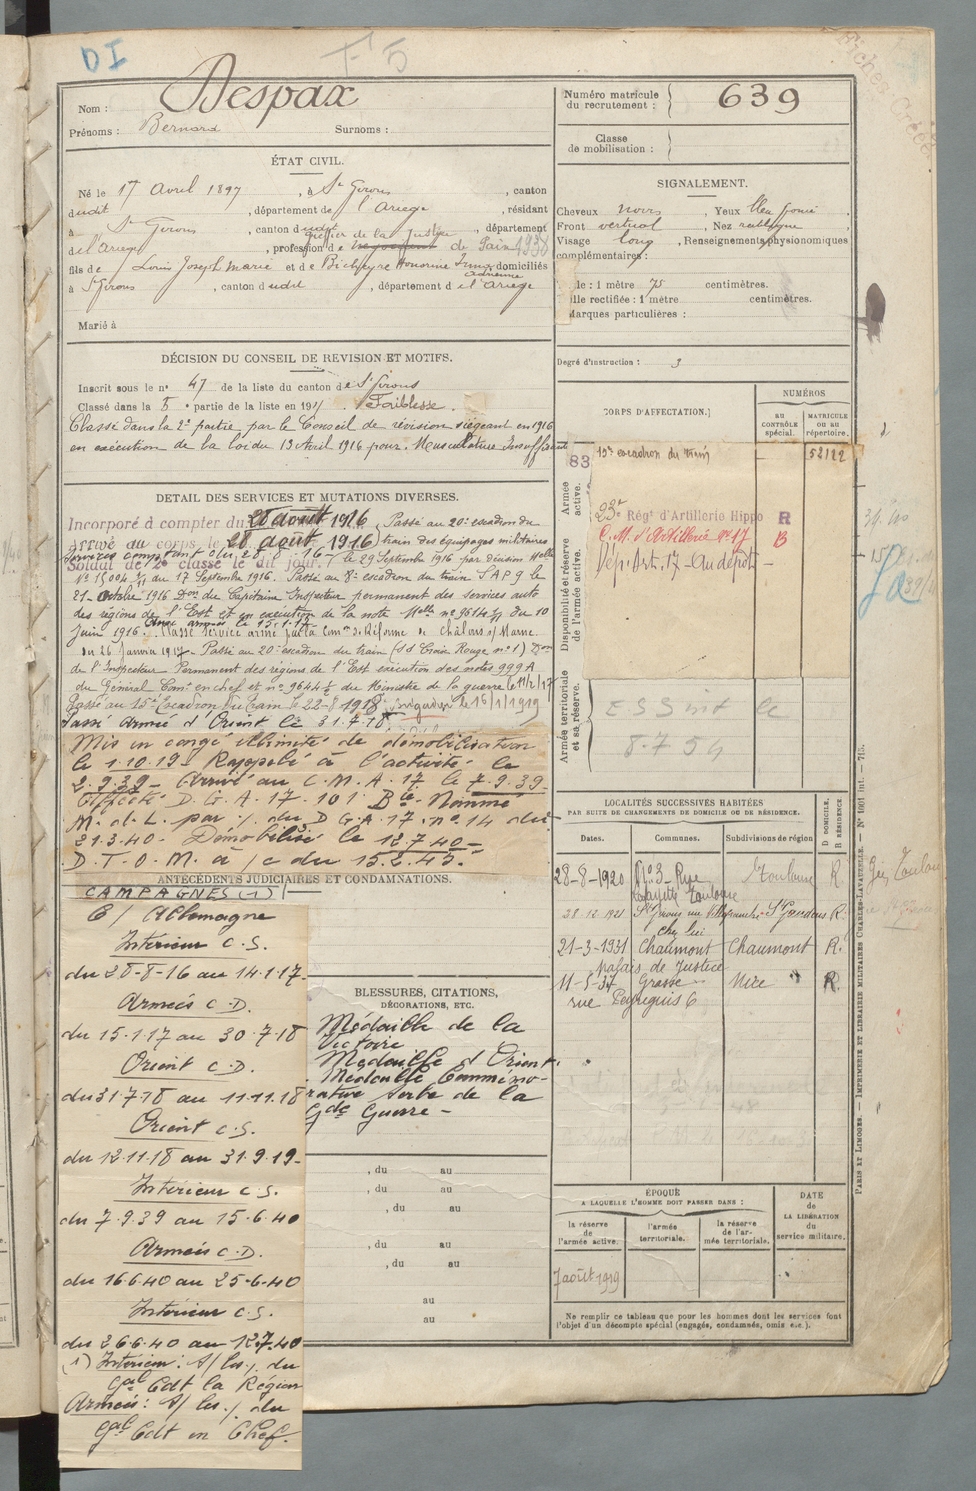 DI
F 5
Nom : Despax
Prénoms : Bernard Surnoms :
ÉTAT CIVIL.
Né le 17 Avril 1897, à St Girons, canton
dudit, département de l'Ariege, résidant
à St Girons, canton dudit, département
greffier de la Justice
de l'Ariege, profession de de Paix 1938
fils de Louis Joseph Marie et de Bicheyre Honorine Irma domiciliés
à St Girons, canton dudit, département de l'Ariege
Marié à
DÉCISION DU CONSEIL DE REVISION ET MOTIFS.
Inscrit sous le n° 47 de la liste du canton de St Girons
Classé dans la 5e partie de la liste en 191 . Faiblesse.
Classé dans la 2e partie par le Conseil de révision siégeant en 1916
en exécution de la loi du 13 Avril 1916 pour. Musculature Insuffisante
DETAIL DES SERVICES ET MUTATIONS DIVERSES.
Incorporé à compter du 28 août 1916, Passé au 20e escadron du
Arrivé au corps le 28 août 1916, train des équipages militaires
Services comptant du 28-8-16
Soldat de 2e classe le dit jour. le 29 Septembre 1916 par décision Melle
N° 15004 du 17 Septembre 1916. Passé au 8e escadron du train S A P 9 le
21 Octobre 1916 Don du Capitaine Inspecteur permanent des services auto
des régions de l'Est et en exécution de la note Melle n° 9614 du 10
Juin 1916. Classé service armé par la Comon de Réforme de Châlons s/ Marne.
du 26 Janvier 1917 - Passé au 20e escadron du train (SS Croix Rouge n° 1) Don
de l'Inspecteur Permanent des régions de l'Est exécution des notes 999 A
du Général Comt en chef et n° 9644 du Ministre de la guerre le 11/2/17
Passé au 15e Escadron du Train le 22-8-1918 Brigadier le 16/1/1919
Passé Armée d'Orient le 31.7.18
Mis en congé illimité de démobilisation
le 1.10.19 - Rappelé à l'activité le
2.9.39 - Arrivé au C.M.A. 17 le 7.9.39 -
Affecté D.G.A. 17. 101e Bie - Nommé
M. d. L. par du D G A 17. n° 14 du
21.3.40 - Démobilisé le 12.7.40 -
D.T.O.M. à /c du 15.2.45.
ANTÉCÉDENTS JUDICIAIRES ET CONDAMNATIONS.
CAMPAGNES (1)
C/ Allemagne
Intérieur C.S.
du 28-8-16 au 14.1.17-
Armées C.D.
du 15.1.17 au 30.7.18
Orient C.D.
du 31.7.18 au 11.11.18
Orient C.S.
du 12.11.18 au 31.9.19-
Intérieur C.S.
du 7.9.39 au 15.6.40
Armées C.D.
du 16.6.40 au 25-6-40
Intérieur C.S.
du 26.6.40 au 12.7.40
(1) Intérieur : du
Gal Cdt la Région
Armées : du
Gal Cdt en Chef.
BLESSURES, CITATIONS,
DÉCORATIONS, ETC.
Médaille de la
Victoire
Médaille d'Orient.
Médaille Commémo-
rative Serbe de la
Gde Guerre -
, du au
, du au
, du au
, du au
, du au
au
au
Numéro matricule
du recrutement : 639
Classe
de mobilisation :
SIGNALEMENT.
Cheveux noirs, Yeux bleu foncé
Front vertical, Nez rectiligne
Visage long, Renseignements physionomiques
complémentaires :
lle : 1 mètre 75 centimètres.
ille rectifiée : 1 mètre centimètres.
Marques particulières :
Degré d'instruction : 3
CORPS D'AFFECTATION.
NUMÉROS
AU CONTRÔLE spécial.
MATRICULE OU AU répertoire.
Armée active.
83
15e escadron du train - 52122
Disponibilité et réserve de l'armée active.
23e Régt d'Artillerie Hippo R
C. M. d'Artillerie n° 17 B
Dép. Art. 17 - Au dépôt -
Armée territoriale et sa réserve.
ESS int le
8.7.54
LOCALITÉS SUCCESSIVES HABITÉES
PAR SUITE DE CHANGEMENTS DE DOMICILE OU DE RÉSIDENCE.
Dates. Communes. Subdivisions de région
D DOMICILE.
R RÉSIDENCE.
28-8-1920 N° 3 Rue Lafayette Toulouse Toulouse R
28-12-1921 St Girons rue Villefranche chez lui St Gaudens R.
21-3-1931 Chaumont palais de Justice Chaumont R.
11-5-37 Grasse rue Peyreguis 6 Nice R.
ÉPOQUE
A LAQUELLE L'HOMME DOIT PASSER DANS :
la réserve de l'armée active.
l'armée territoriale.
la réserve de l'armée territoriale.
DATE
de
LA LIBÉRATION
du
service militaire.
7 août 1919
Ne remplir ce tableau que pour les hommes dont les services font
l'objet d'un décompte spécial (engagés, condamnés, omis etc.).
PARIS ET LIMOGES. — IMPRIMERIE ET LIBRAIRIE MILITAIRES CHARLES-LAVAUZELLE. — N° 1001 int. — 715.